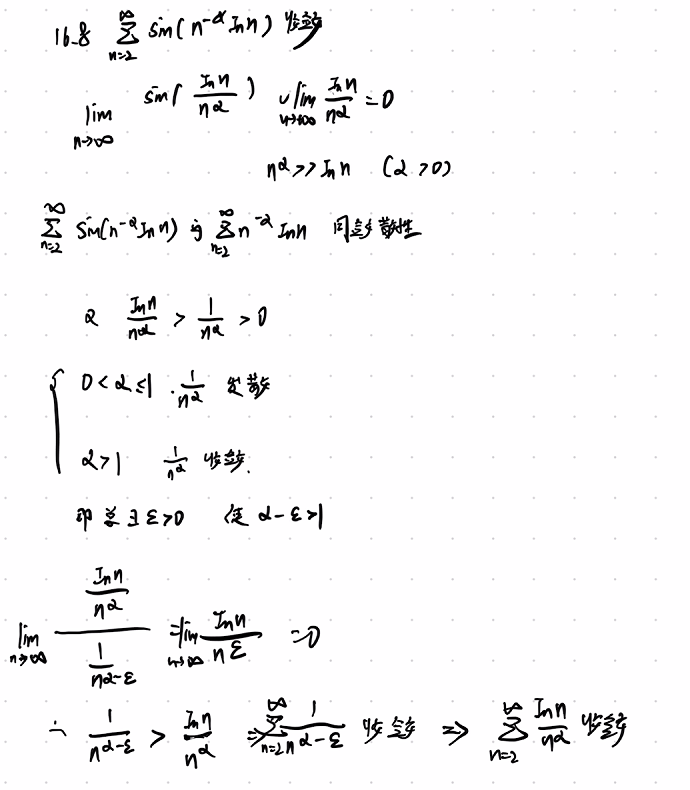 16.8 ∑_{n=2}^{∞} sin(n^{-α} ln n) 收敛
lim_{n→∞} sin( ln n / n^α ) lim_{n→+∞} ln n / n^α = 0
n^α >> ln n (α > 0)
∑_{n=2}^{∞} sin(n^{-α} ln n) 与 ∑_{n=2}^{∞} n^{-α} ln n 同敛散性
ln n / n^α > 1 / n^α > 0
{ 0 < α ≤ 1 . 1 / n^α 发散
α > 1 1 / n^α 收敛.
即 ∃ ε > 0 使 α - ε > 1
lim_{n→∞} (ln n / n^α) / (1 / n^{α-ε}) = lim_{n→∞} ln n / n^ε = 0
∴ 1 / n^{α-ε} > ln n / n^α ⇒ ∑_{n=2}^{∞} 1 / n^{α-ε} 收敛 ⇒ ∑_{n=2}^{∞} ln n / n^α 收敛